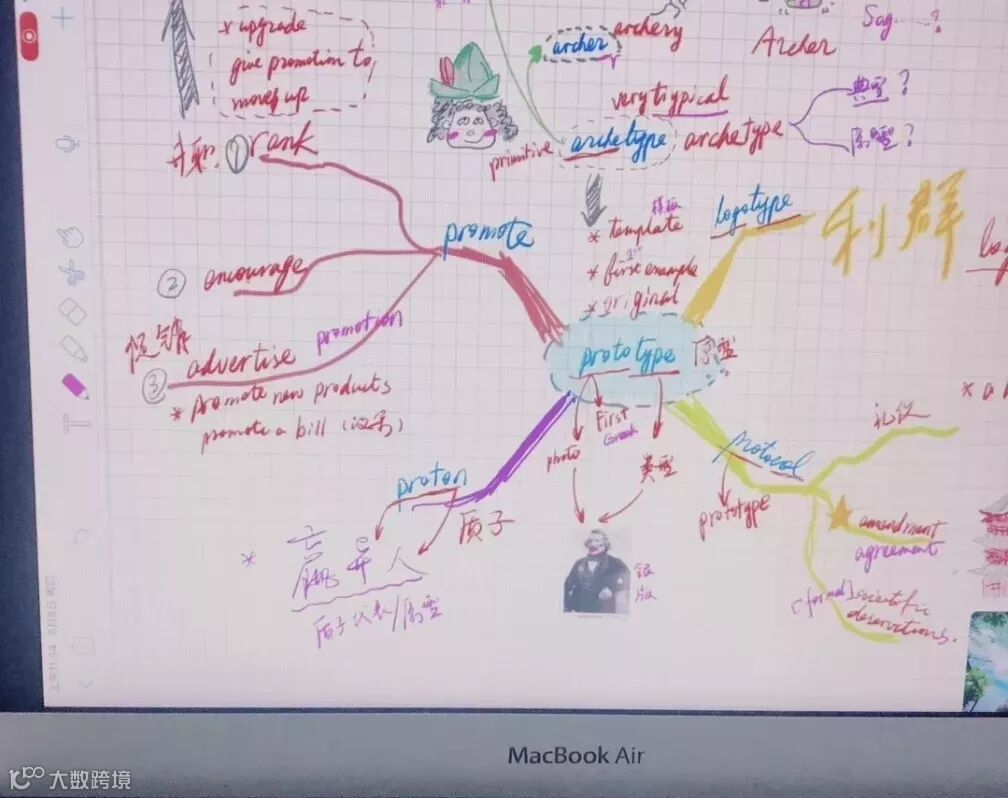 * upgrade
give promotion to
move up
archer
archery
Archer
Sag......?
very trypical
典型?
primitive
archetype
archetype
原型?
升职.
① rank
promote
模板
* template
logotype
利群
* first example
* original
② encourage
促销
promotion
③ advertise
prototype
原型
* promote new products
promote a bill (议案)
First
Greek
photo
类型
protocol
礼仪
prototype
amendment
agreement
proton
质子
* 嬴异人
质子代表/原型
银版
(formal) scientific
observations.
* a
MacBook Air
大数跨境